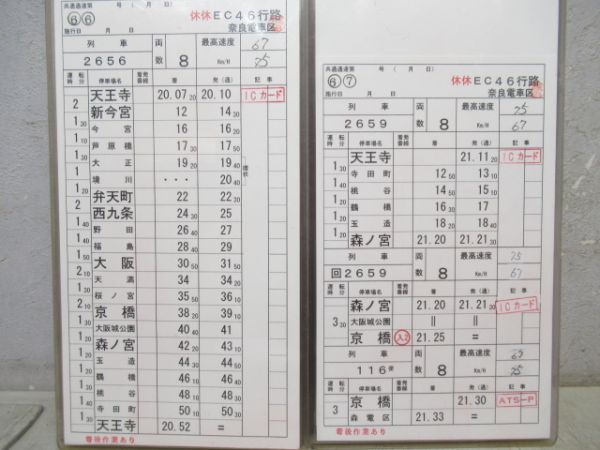 共通過速第 号 ( 月 日)
⑥⑥ 休休EC46行路
施行日 月 日 奈良電車区
列車 両数 最高速度 67
2656 8 Km/H 75
運転時分 停車場名 着発番線 着 発(通) 記事
天王寺 20.07 20 20.10 ICカード
2 新今宮 12 14 30
1 30 今宮 16 16 20
1 芦原橋 17 30 17 50
1 30 大正 19 20 19 40
1 境川 ・・・ 20 40
1 20 弁天町 22 22 30
2 西九条 24 30 25
1 40 野田 26 40 27
福島 28 40 29
大阪 30 50 31 50
天満 34 34 20
桜ノ宮 35 50 36 10
京橋 38 20 39 10
大阪城公園 40 40 41
森ノ宮 42 20 43
玉造 44 30 44 50
鶴橋 46 10 46 40
桃谷 48 10 48 30
寺田町 50 10 50 30
天王寺 20.52 =
着後作業あり
共通過速第 号 ( 月 日)
⑥⑦ 休休EC46行路
施行日 月 日 奈良電車区
列車 両数 最高速度 75
2659 8 Km/H 67
運転時分 停車場名 着発番線 着 発(通) 記事
天王寺 21.11 20 ICカード
1 30 寺田町 12 50 13 10
1 20 桃谷 14 50 15 10
1 20 鶴橋 16 30 17
1 20 玉造 18 20 18 40
1 20 森ノ宮 21.20 21.21 30
列車 両数 最高速度 75
回2659 8 Km/H 67
森ノ宮 21.20 21.21 30 ICカード
3 30 大阪城公園 ‖ ‖
京橋 入2 21.25 =
列車 両数 最高速度
116 8 Km/H 75
京橋 21.30 ATS-P
3 森電区 21.33 =
着後作業あり